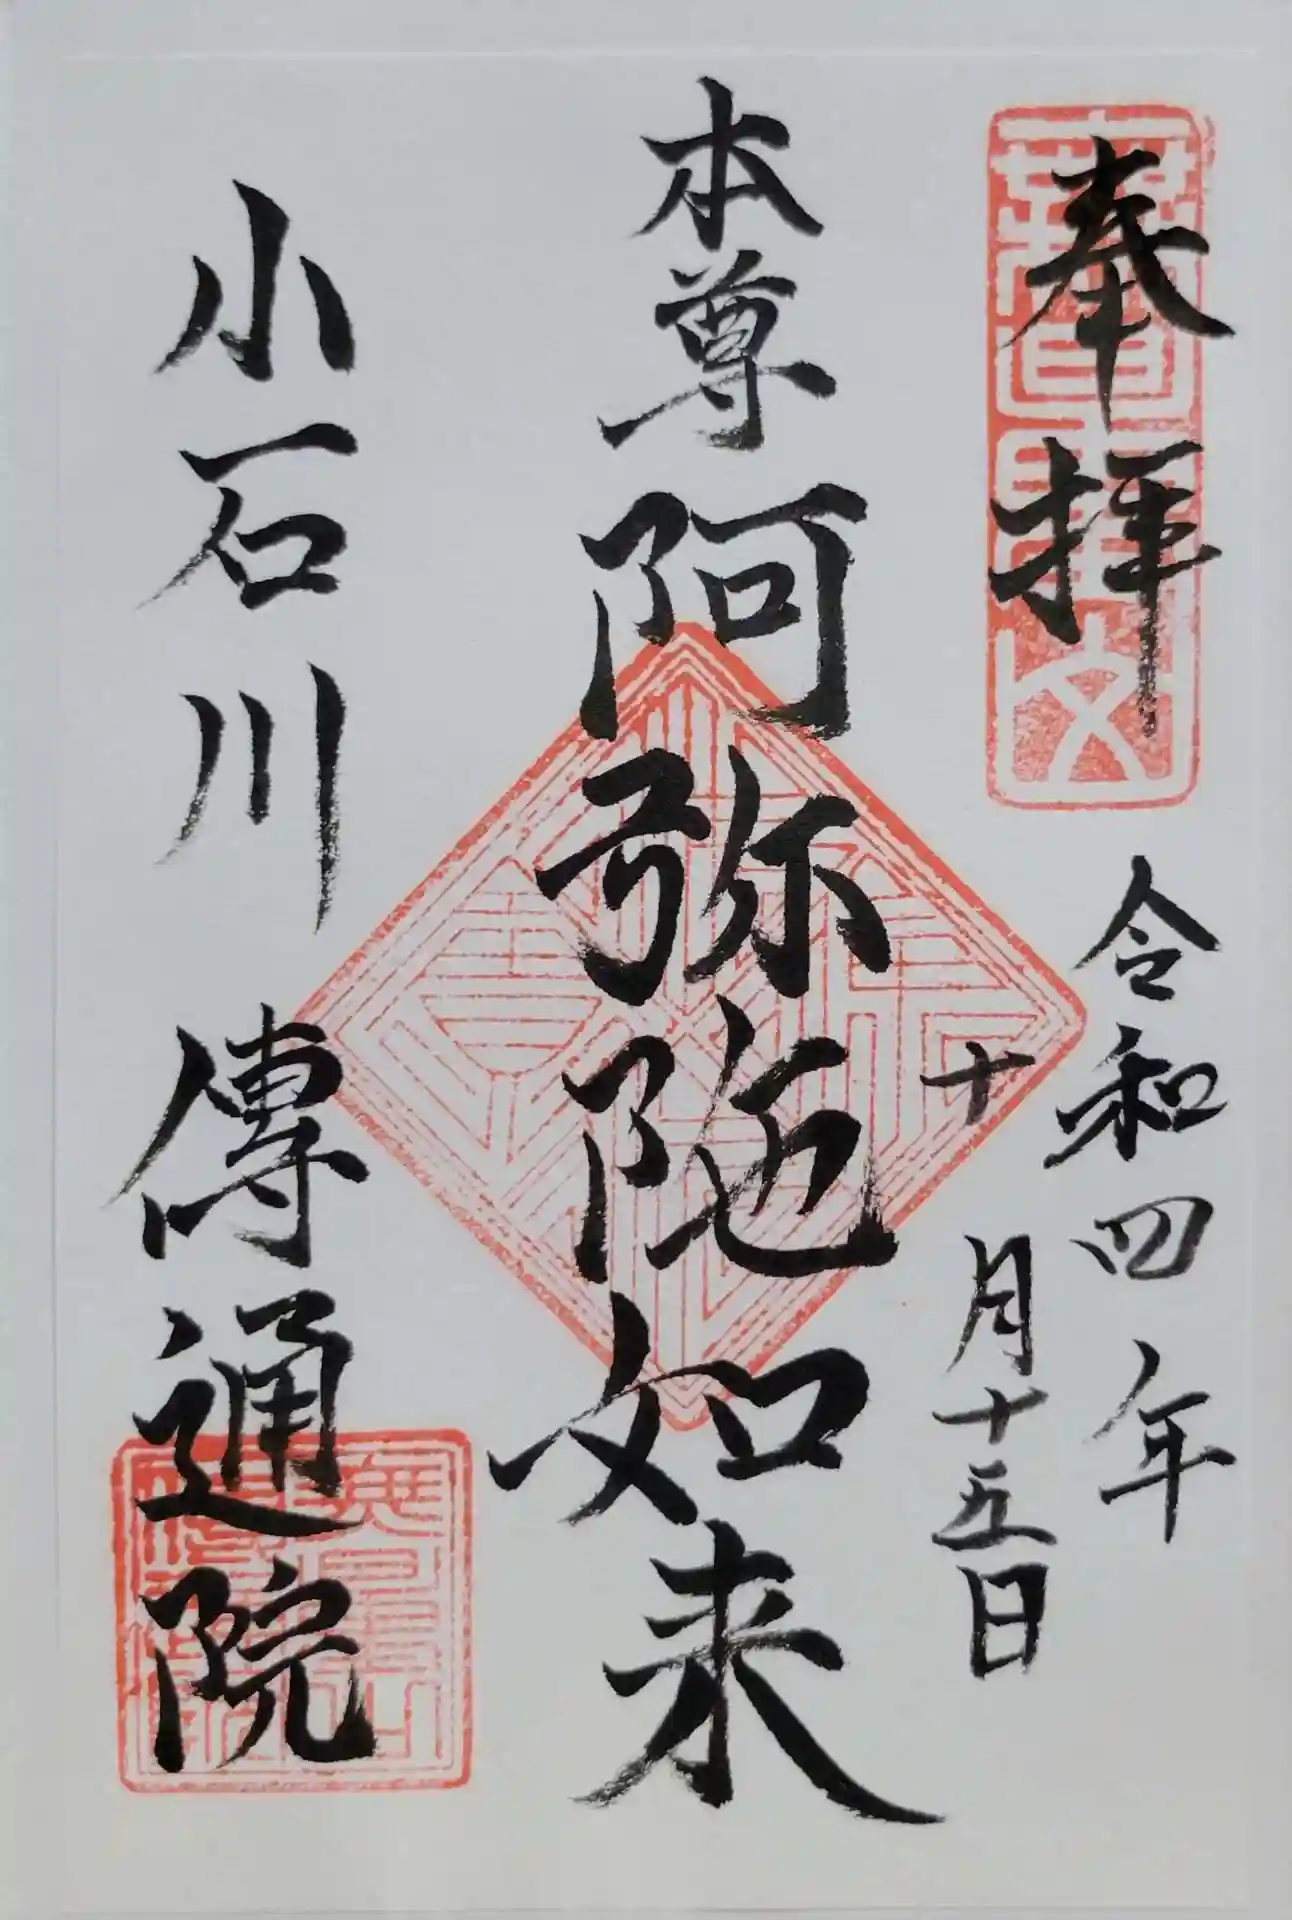 奉拝
令和四年
十月十五日
本尊阿弥陀如来
小石川傳通院